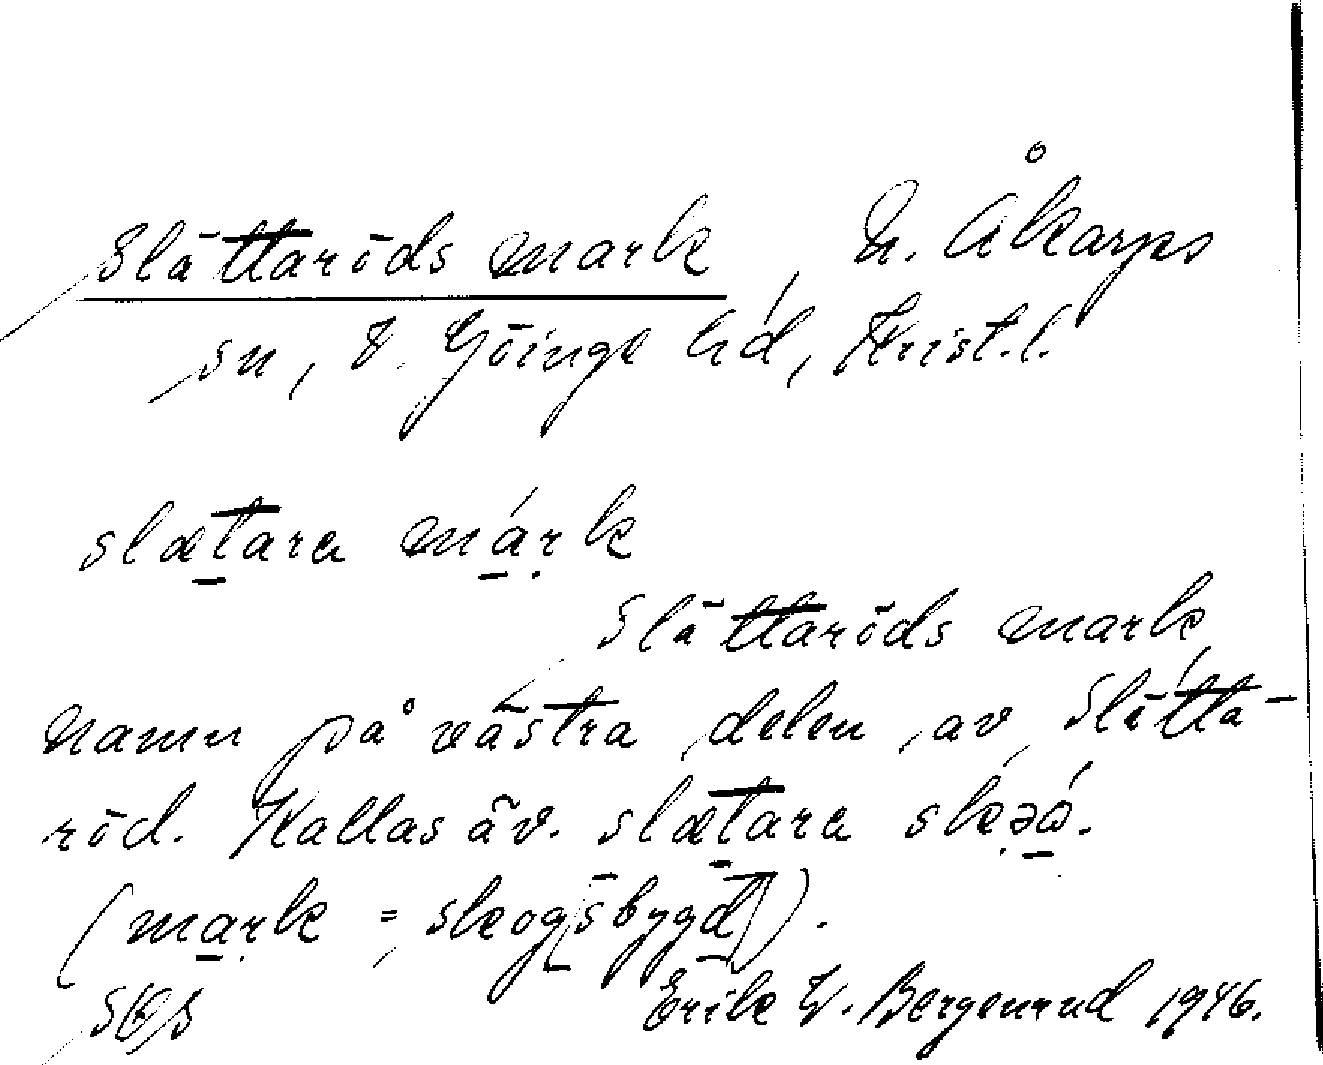 Slättaröds mark, N. Åkarps
sn, V. Göinge hd, Krist.l.
slætara márk
Slättaröds mark,
namn på västra delen av Slätta-
röd. Kallas äv. slætara
(mark = skogsbygd).
Erik W. Bergenrud 1946.